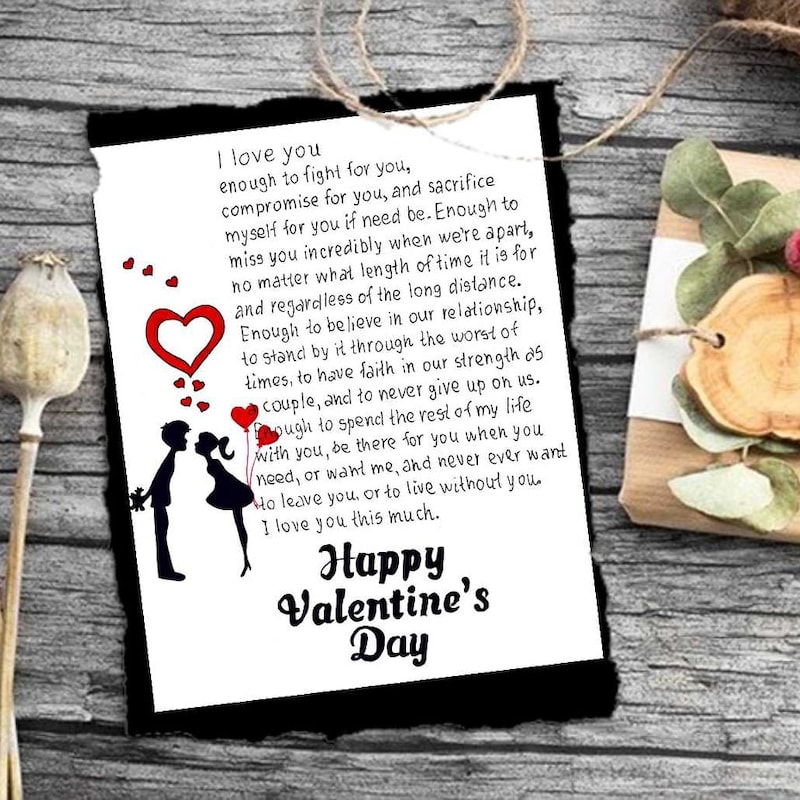 I love you
enough to fight for you,
compromise for you, and sacrifice
myself for you if need be. Enough to
miss you incredibly when we're apart,
no matter what length of time it is for
and regardless of the long distance.
Enough to believe in our relationship,
to stand by it through the worst of
times, to have faith in our strength as
a couple, and to never give up on us.
Enough to spend the rest of my life
with you, be there for you when you
need, or want me, and never ever want
to leave you or to live without you.
I love you this much.
Happy
Valentine's
Day